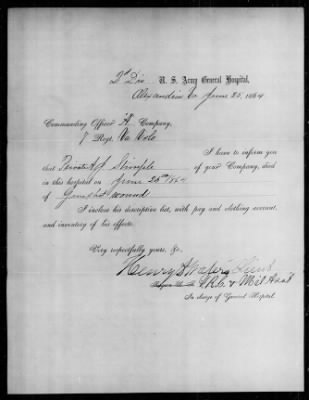 2d Div U. S. Army General Hospital,
Alexandria Va June 25, 1864
Commanding Officer H Company,
7 Regt. Va Vols
I have to inform you
that Private of your Company, died
in this hospital on June 1864
of Gunshot wound
I inclose his descriptive list, with pay and clothing account,
and inventory of his effects.
Very respectfully yours, &c.
Henry
In charge of General Hospital.